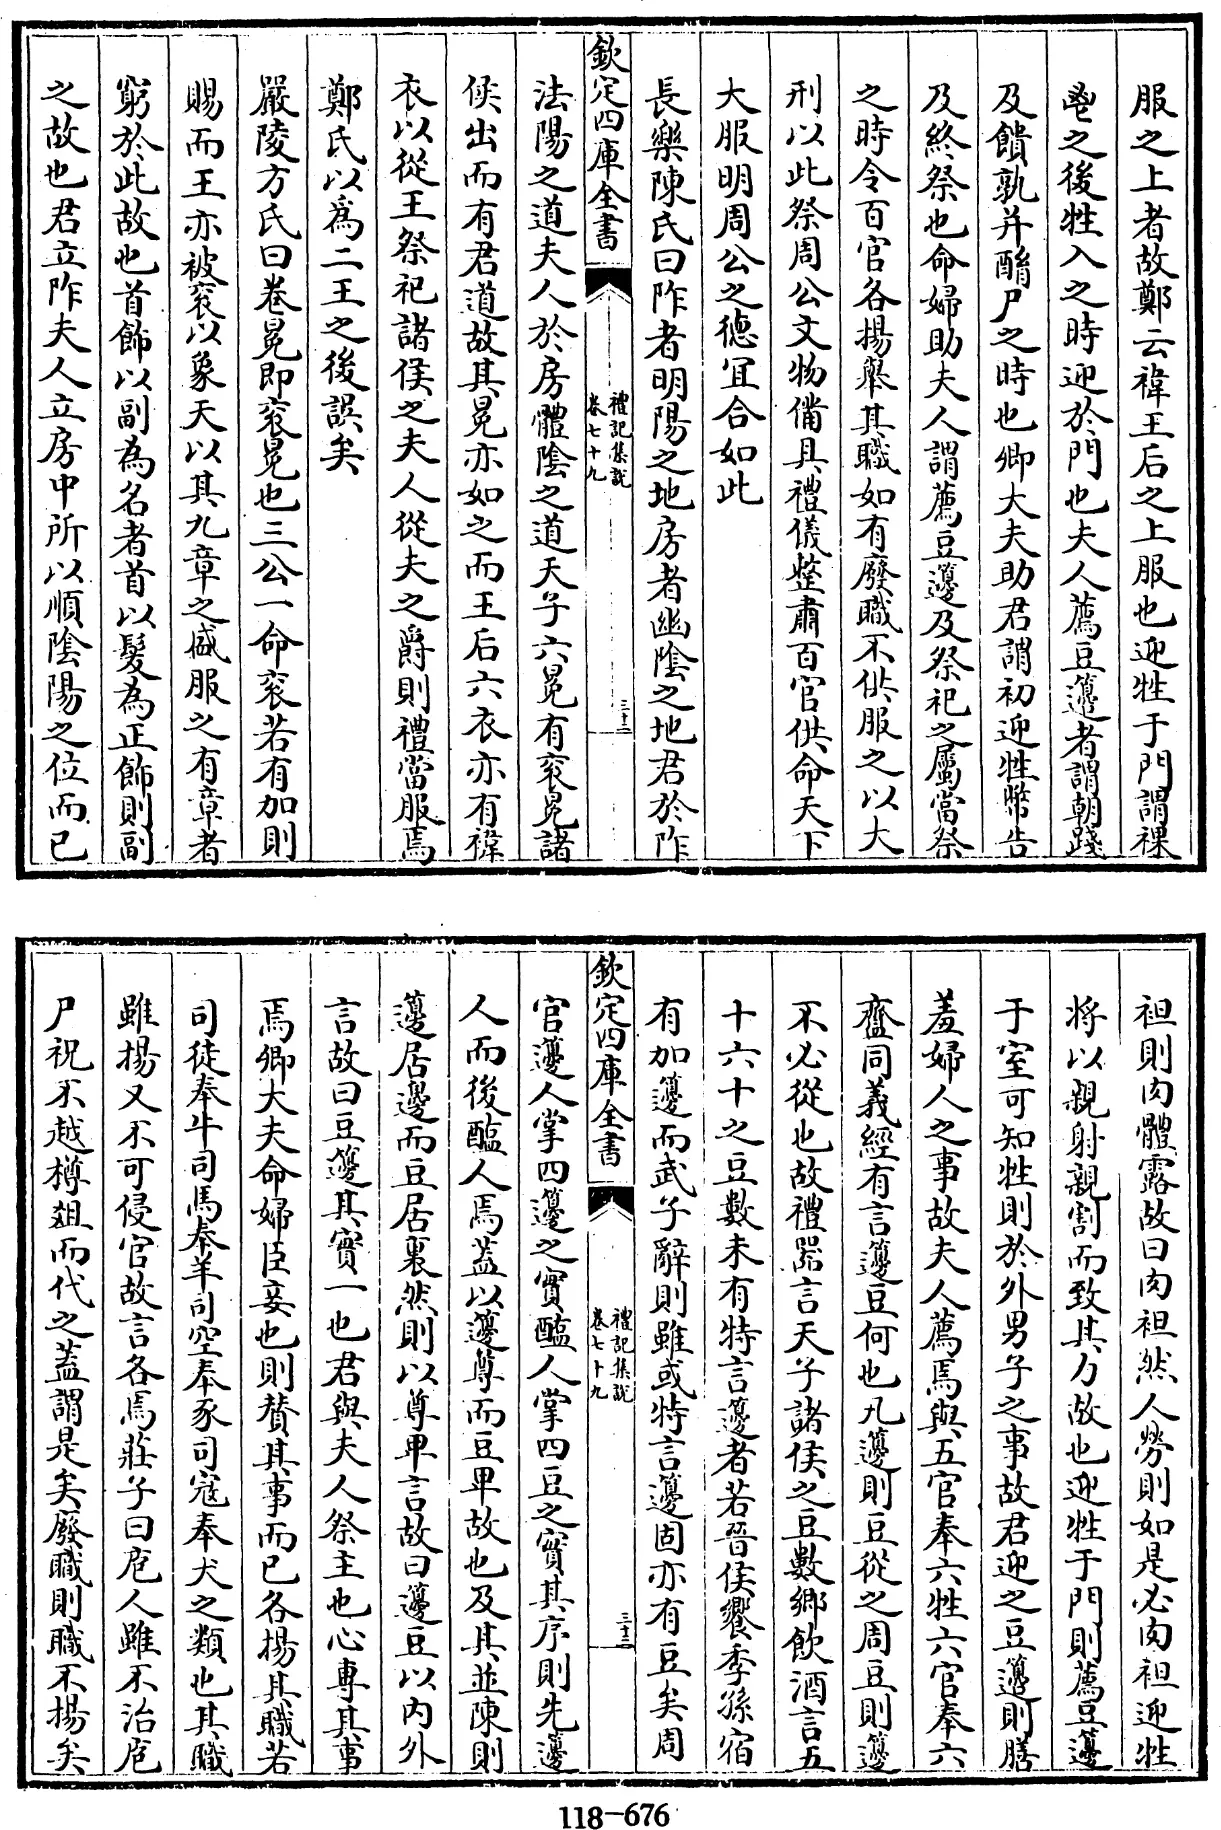 服之上者故鄭云褘王后之上服也迎牲于門謂祼
鬯之後牲入之時迎於門也夫人薦豆籩者謂朝踐
及饋孰并酳尸之時也卿大夫助君謂初迎牲幣告
及終祭也命婦助夫人謂薦豆籩及祭祀之屬當祭
之時令百官各揚舉其職如有廢職不供服之以大
刑以此祭周公文物備具禮儀整肅百官供命天下
大服明周公之德宜合如此
長樂陳氏曰阼者明陽之地房者幽陰之地君於阼
欽定四庫全書
禮記集說
卷七十九
三十二
法陽之道夫人於房體陰之道天子六冕有衮冕諸
侯出而有君道故其冕亦如之而王后六衣亦有褘
衣以從王祭祀諸侯之夫人從夫之爵則禮當服焉
鄭氏以為二王之後誤矣
嚴陵方氏曰卷冕即衮冕也三公一命衮若有加則
賜而王亦被衮以象天以其九章之盛服之有章者
窮於此故也首飾以副為名者首以髮為正飾則副
之故也君立阼夫人立房中所以順陰陽之位而已
袒則肉體露故曰肉袒然人勞則如是必肉袒迎牲
將以親射親割而致其力故也迎牲于門則薦豆籩
于室可知牲則於外男子之事故君迎之豆籩則膳
羞婦人之事故夫人薦焉與五官奉六牲六官奉六
齍同義經有言籩豆何也凡籩則豆從之周豆則籩
不必從也故禮器言天子諸侯之豆數鄉飲酒言五
十六十之豆數未有特言籩者若晉侯饗季孫宿
有加籩而武子辭則雖或特言籩固亦有豆矣周
欽定四庫全書
禮記集說
卷七十九
三十三
官籩人掌四籩之實醢人掌四豆之實其序則先籩
人而後醢人焉蓋以籩尊而豆卑故也及其並陳則
籩居邊而豆居裏然則以尊卑言故曰籩豆以內外
言故曰豆籩其實一也君與夫人祭主也心專其事
焉卿大夫命婦臣妾也則贊其事而已各揚其職若
司徒奉牛司馬奉羊司空奉豕司寇奉犬之類也其職
雖揚又不可侵官故言各焉莊子曰庖人雖不治庖
尸祝不越樽俎而代之蓋謂是矣廢職則職不揚矣
118-676